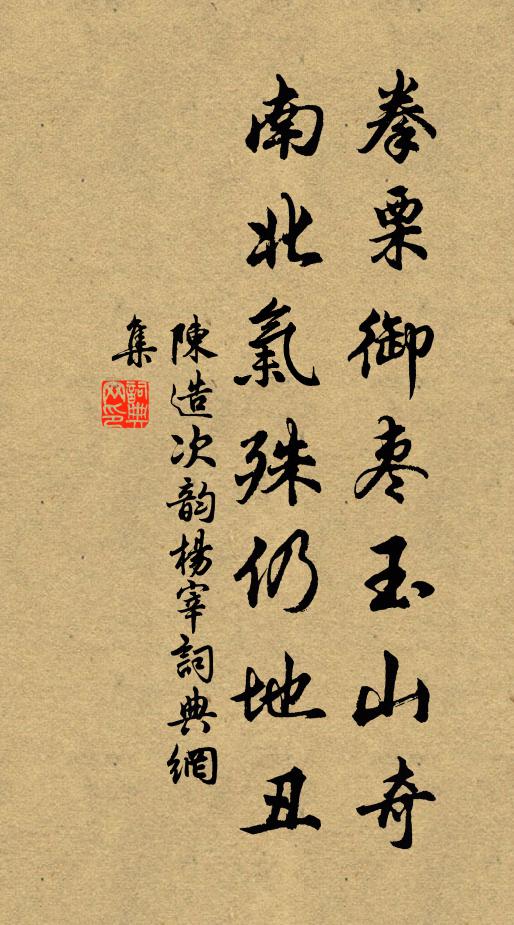 拳栗御枣玉山奇
南北氣殊仍地丑
陳造次韵楊宰詞典網
集
詞典网印